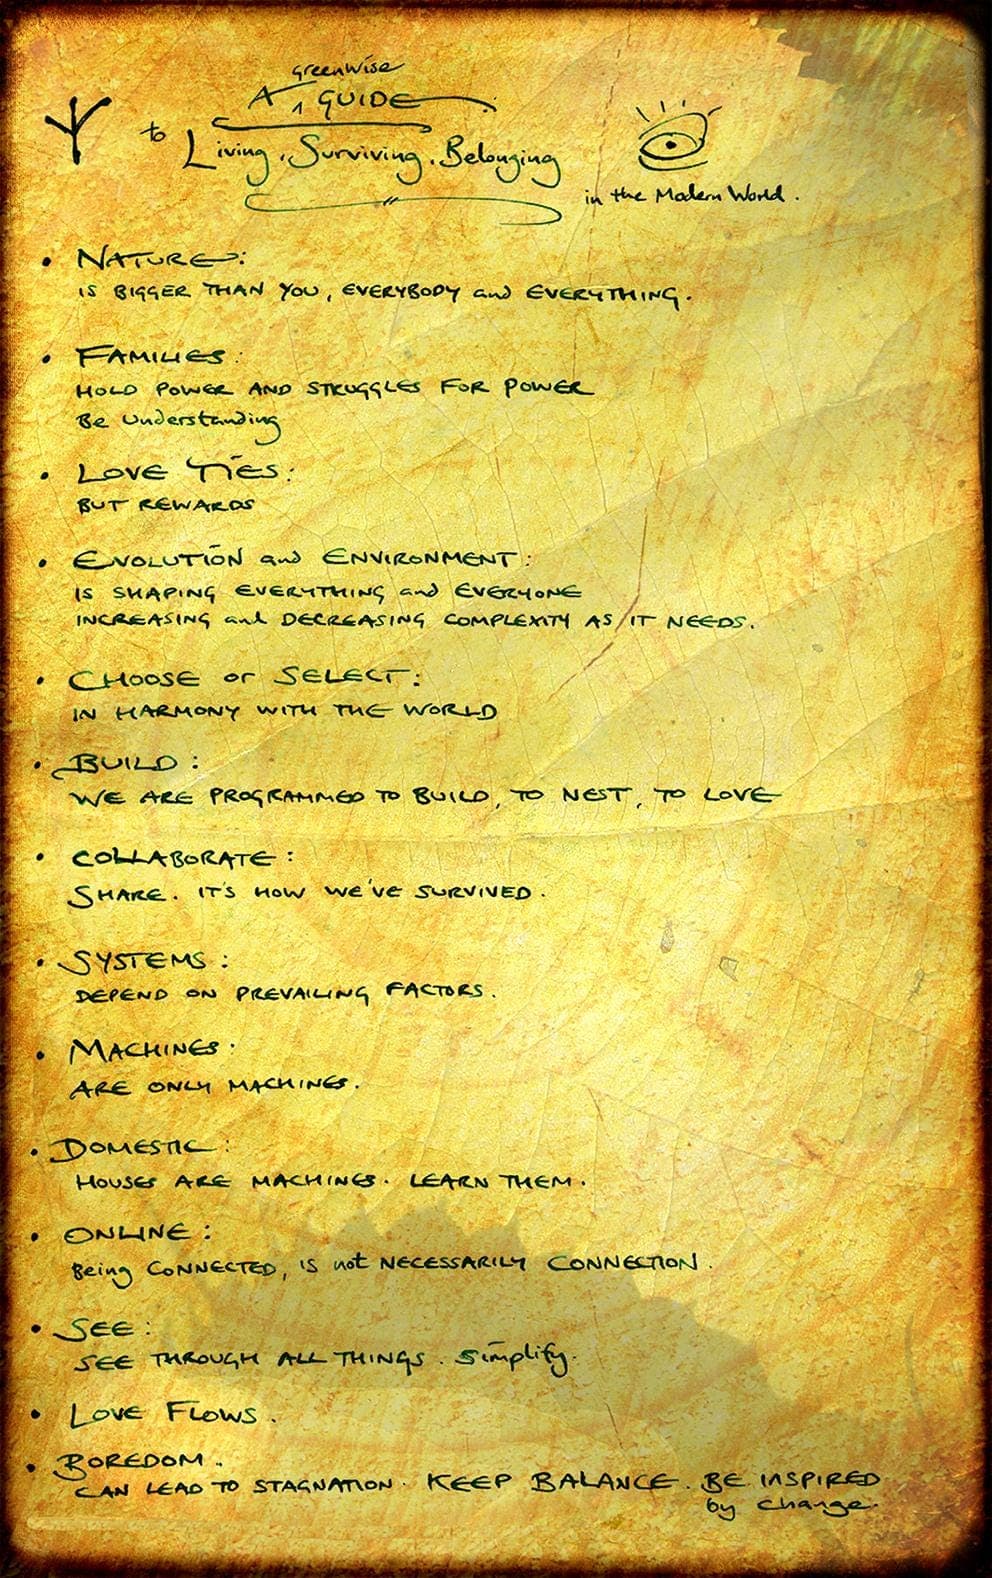 greenwise
A ^ GUIDE
to Living . Surviving . Belonging
in the Modern World .
• NATURE:
IS BIGGER THAN YOU, EVERYBODY and EVERYTHING.
• FAMILIES:
HOLD POWER AND STRUGGLES FOR POWER
Be Understanding
• LOVE TIES:
BUT REWARDS
• EVOLUTION and ENVIRONMENT:
IS SHAPING EVERYTHING and EVERYONE
INCREASING and DECREASING COMPLEXITY AS IT NEEDS.
• CHOOSE or SELECT:
IN HARMONY WITH THE WORLD
• BUILD:
WE ARE PROGRAMMED TO BUILD, TO NEST, TO LOVE
• COLLABORATE:
SHARE. IT'S HOW WE'VE SURVIVED.
• SYSTEMS:
DEPEND ON PREVAILING FACTORS.
• MACHINES:
ARE ONLY MACHINES.
• DOMESTIC:
HOUSES ARE MACHINES. LEARN THEM.
• ONLINE:
Being CONNECTED, IS not NECESSARILY CONNECTION.
• SEE:
SEE THROUGH ALL THINGS. Simplify.
• LOVE FLOWS.
• BOREDOM..
CAN LEAD TO STAGNATION. KEEP BALANCE. BE INSPIRED
by change.